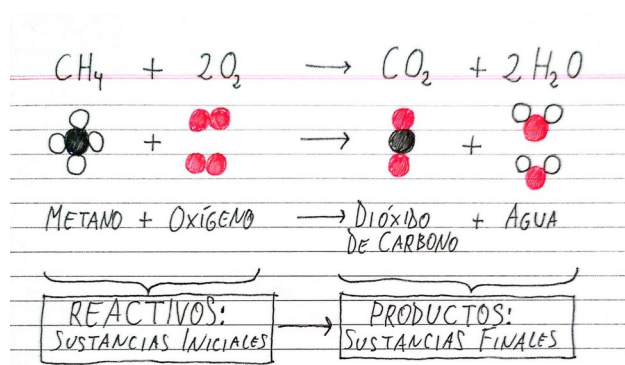 CH₄ + 2O₂ → CO₂ + 2H₂O
+ → +
METANO + OXÍGENO → DIÓXIDO DE CARBONO + AGUA
REACTIVOS: → PRODUCTOS:
SUSTANCIAS INICIALES SUSTANCIAS FINALES